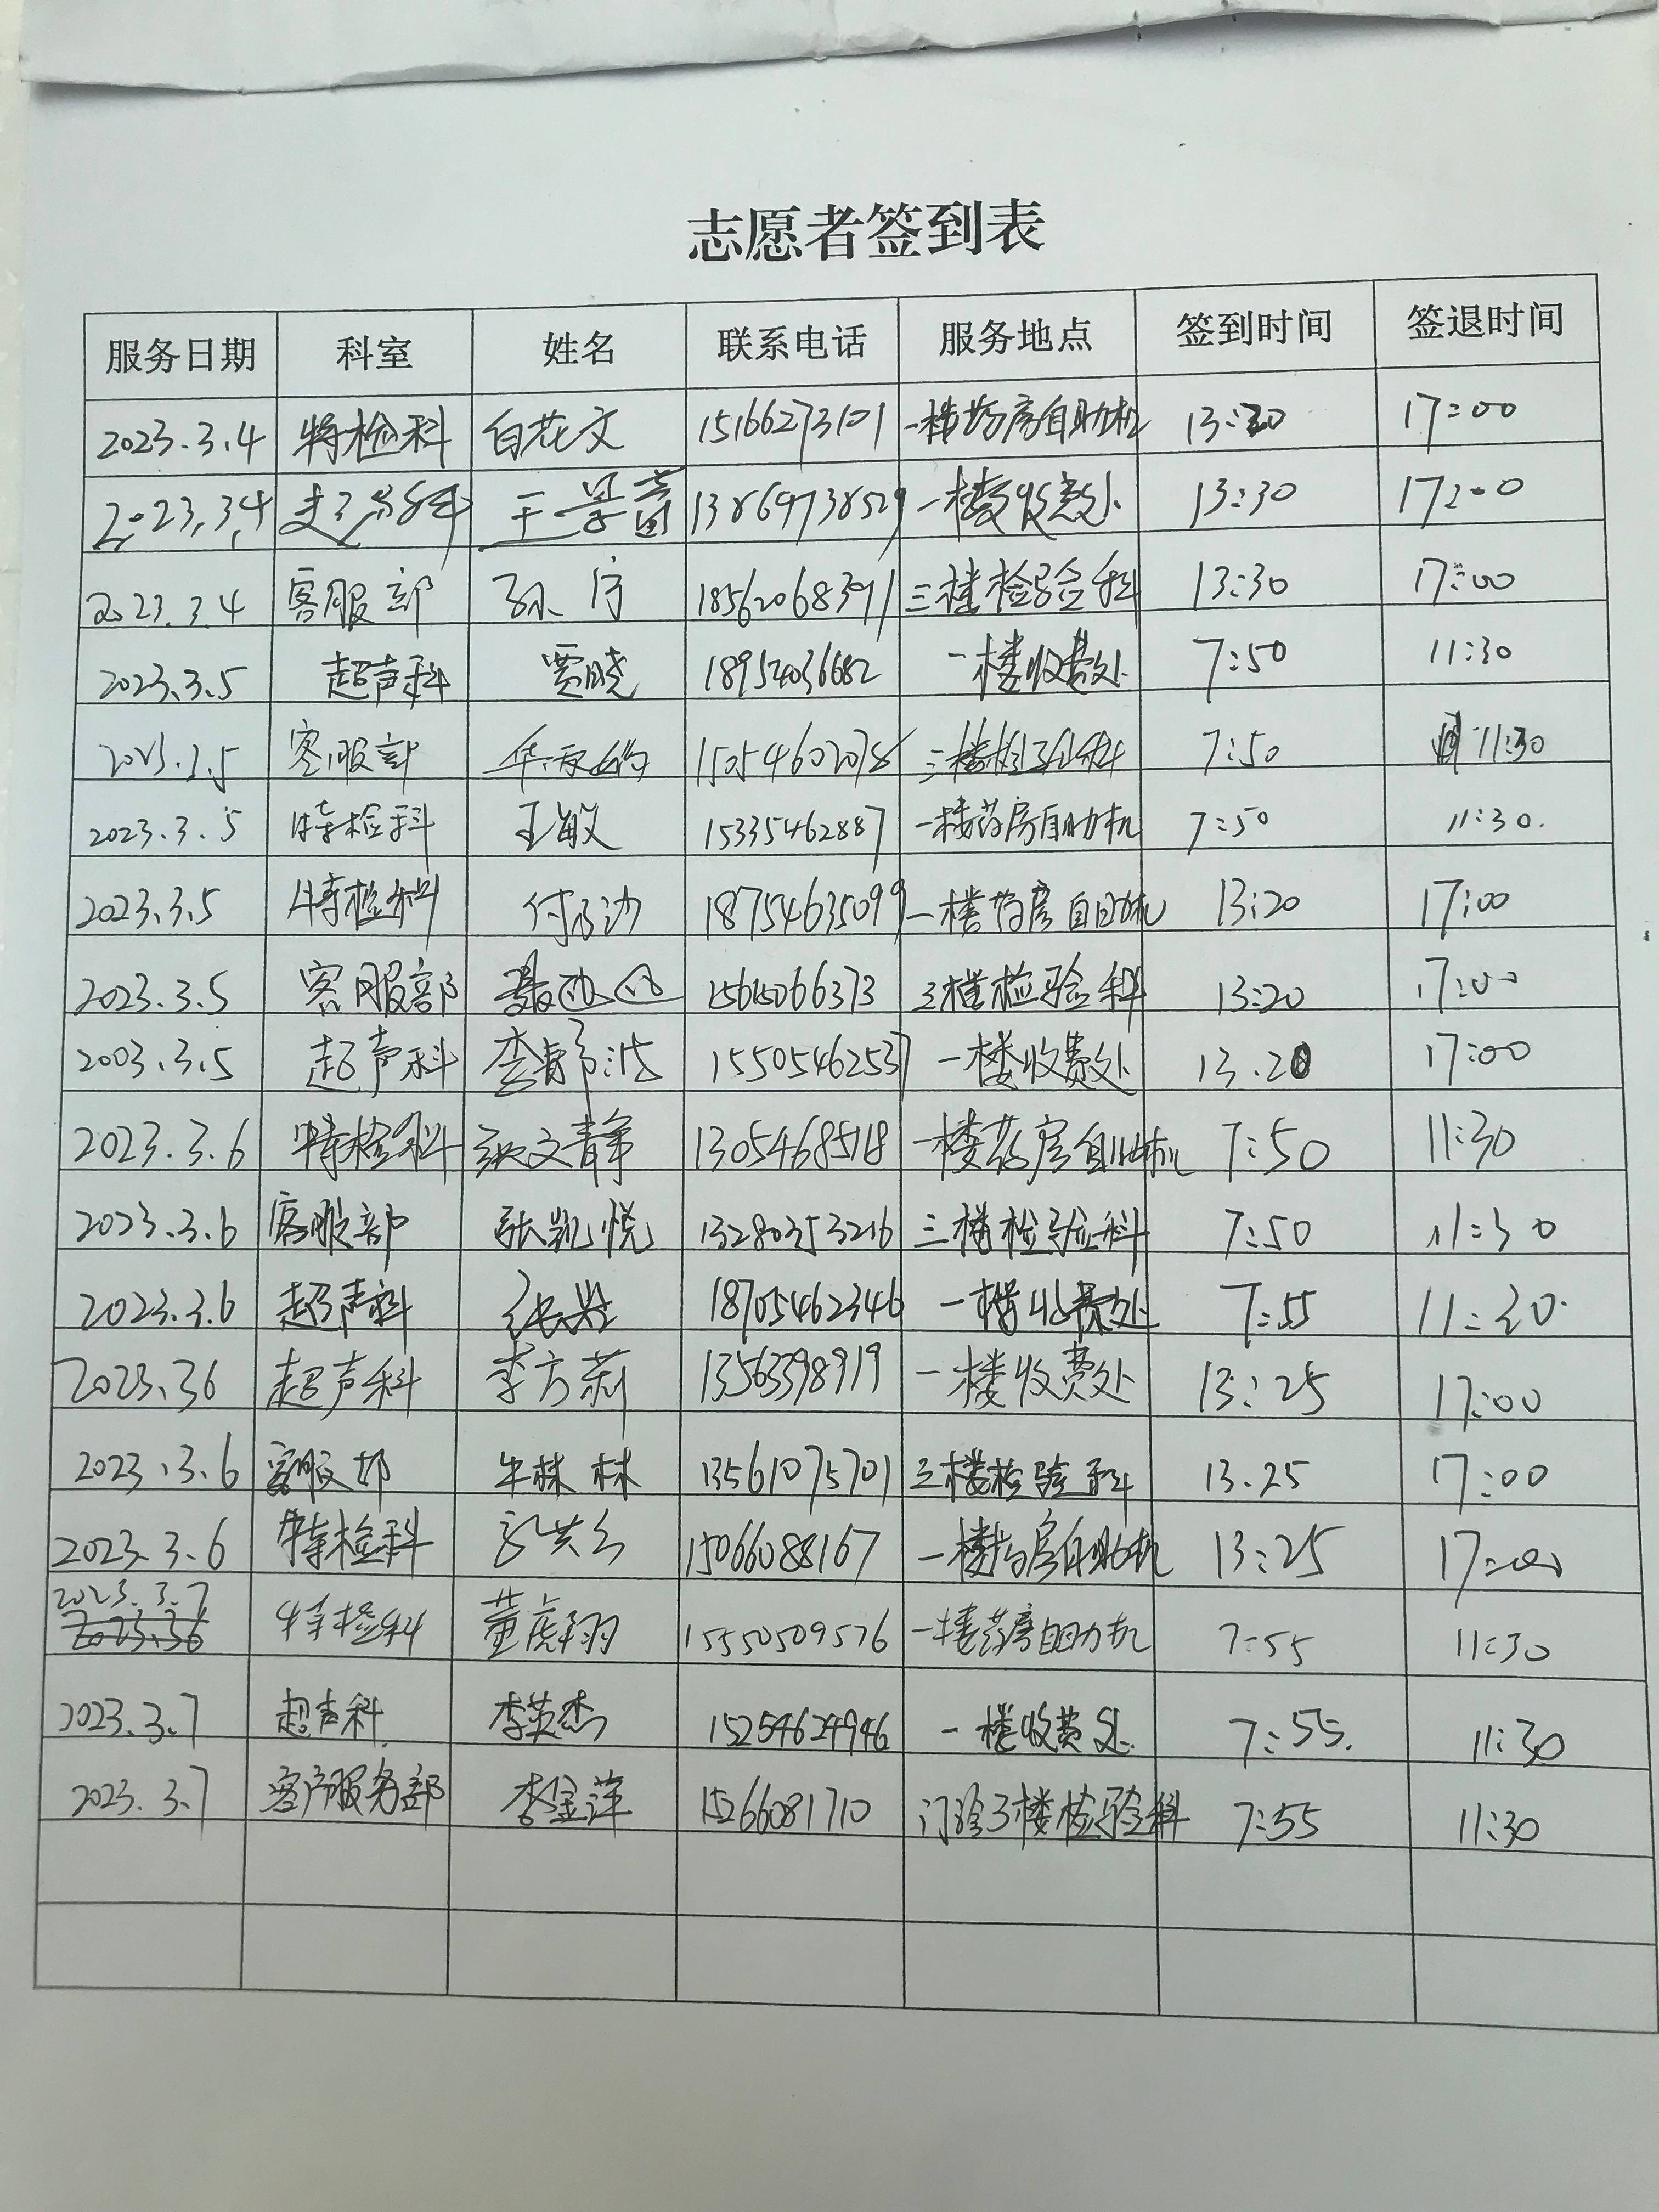 志愿者签到表
服务日期 科室 姓名 联系电话 服务地点 签到时间 签退时间
2023.3.4 特检科 白花文 15166273101 一楼药房自助机 13:30 17:00
2023.3.4 超声科 王景 13864738529 一楼收费处 13:30 17:00
2023.3.4 客服部 孙 18562068391 三楼检验科 13:30 17:00
2023.3.5 超声科 贾晓 18954036682 一楼收费处 7:50 11:30
2023.3.5 客服部 三楼检验科 7:50 11:30
2023.3.5 特检科 王敏 15335462887 一楼药房自助机 7:50 11:30.
2023.3.5 特检科 付 18754635099 一楼药房自助机 13:20 17:00
2023.3.5 客服部 15615066373 三楼检验科 13:20 17:00
2003.3.5 超声科 李 15505462537 一楼收费处 13.20 17:00
2023.3.6 特检科 张文静 一楼药房自助机 7:50 11:30
2023.3.6 客服部 张凯悦 13280353216 三楼检验科 7:50 11:30
2023.3.6 超声科 18705462346 一楼收费处 7:55 11:30.
2023.36 超声科 李方莉 13563398919 一楼收费处 13:25 17:00
2023.3.6 客服部 牛林林 13561075701 三楼检验科 13.25 17:00
2023.3.6 特检科 15066088167 一楼药房自助机 13:25 17:00
2023.3.7
2023.36 特检科 董虎翔 15550509576 一楼药房自助机 7:55 11:30
2023.3.7 超声科 李英杰 15254624946 一楼收费处 7:55. 11:30
2023.3.7 客户服务部 李金萍 15266081710 门诊3楼检验科 7:55 11:30